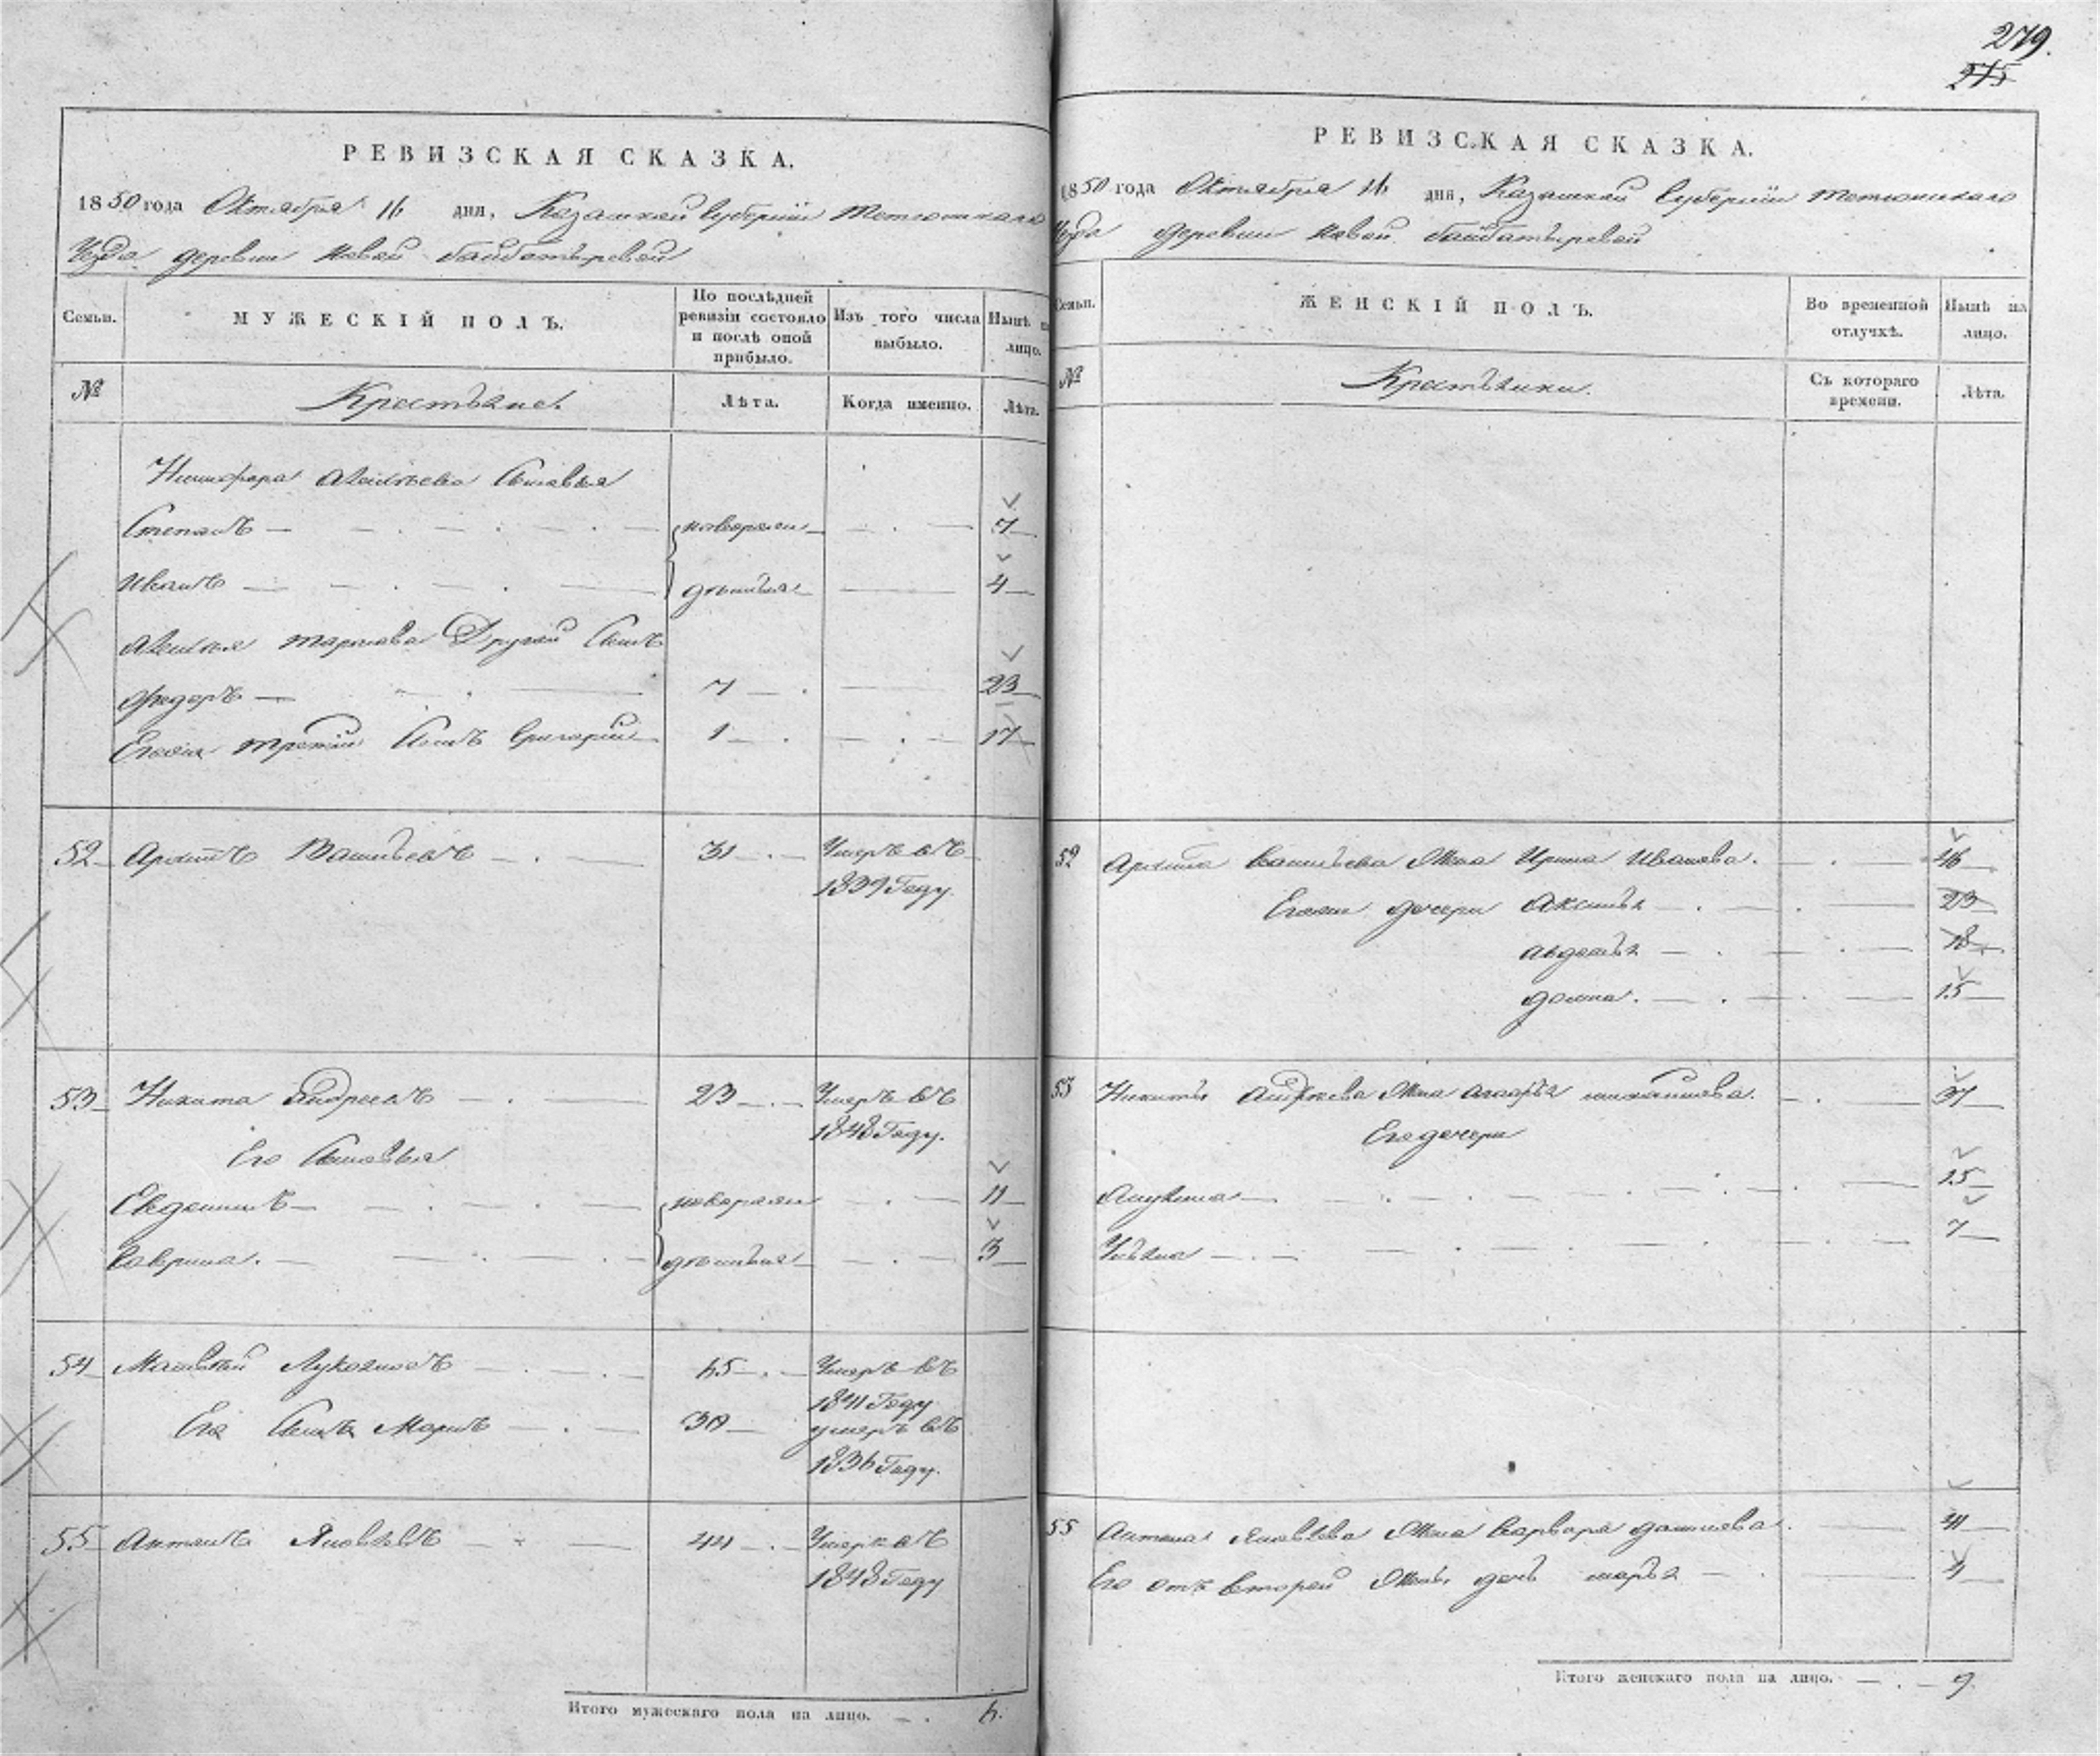 279.
275
РЕВИЗСКАЯ СКАЗКА.
1850 года Октября 16 дня, Казанской Губернии Тетюшскаго
Уезда деревни Новой Байбатыревой
Семьи.
МУЖЕСКІЙ ПОЛЪ.
По послѣдней ревизіи состояло и послѣ оной прибыло.
Изъ того числа выбыло.
Нынѣ на лицо.
№
Крестьяне.
Лѣта.
Когда именно.
Лѣта.
Никифора Сыновья
Степанъ — новорож 7
Иванъ — денныя 4
Другой Сынъ
Федоръ — 7 — 23
третій Сынъ Григорій 1 — 17
52 Архипъ Васильевъ — 31 — Умеръ въ
1839 Году.
53 Никита Андреевъ — 23 — Умеръ въ
1848 Году.
Его Сыновья
Евдокимъ — новорож 11
Гаврила. — денныя 3
54 Матвѣй — 65 — Умеръ въ
1841 Году
Его Сынъ Марко — 30 — умеръ въ
1836 Году.
55 Антонъ Яковлевъ — 44 — Умеръ въ
1848 Году
Итого мужескаго пола на лицо. — 6.
РЕВИЗСКАЯ СКАЗКА.
1850 года Октября 16 дня, Казанской Губерніи Тетюшскаго
Уезда деревни Новой Байбатыревой
Семьи.
ЖЕНСКІЙ ПОЛЪ.
Во временной отлучкѣ.
Нынѣ на лицо.
№
Крестьянки.
Съ котораго времени.
Лѣта.
52 Архипа Васильева Жена Ирина Иванова. — 46
дочери Аксинья — 23
Авдотья — 18
Домна. — 15
53 Никиты Андреева Жена Агафья Михайлова. — 37
Его дочери
15
Ульяна — 7
55 Антона Яковлева Жена Варвара Данилова. — 41
Его отъ второй Жены дочь Марья — 4
Итого женскаго пола на лицо. — 9